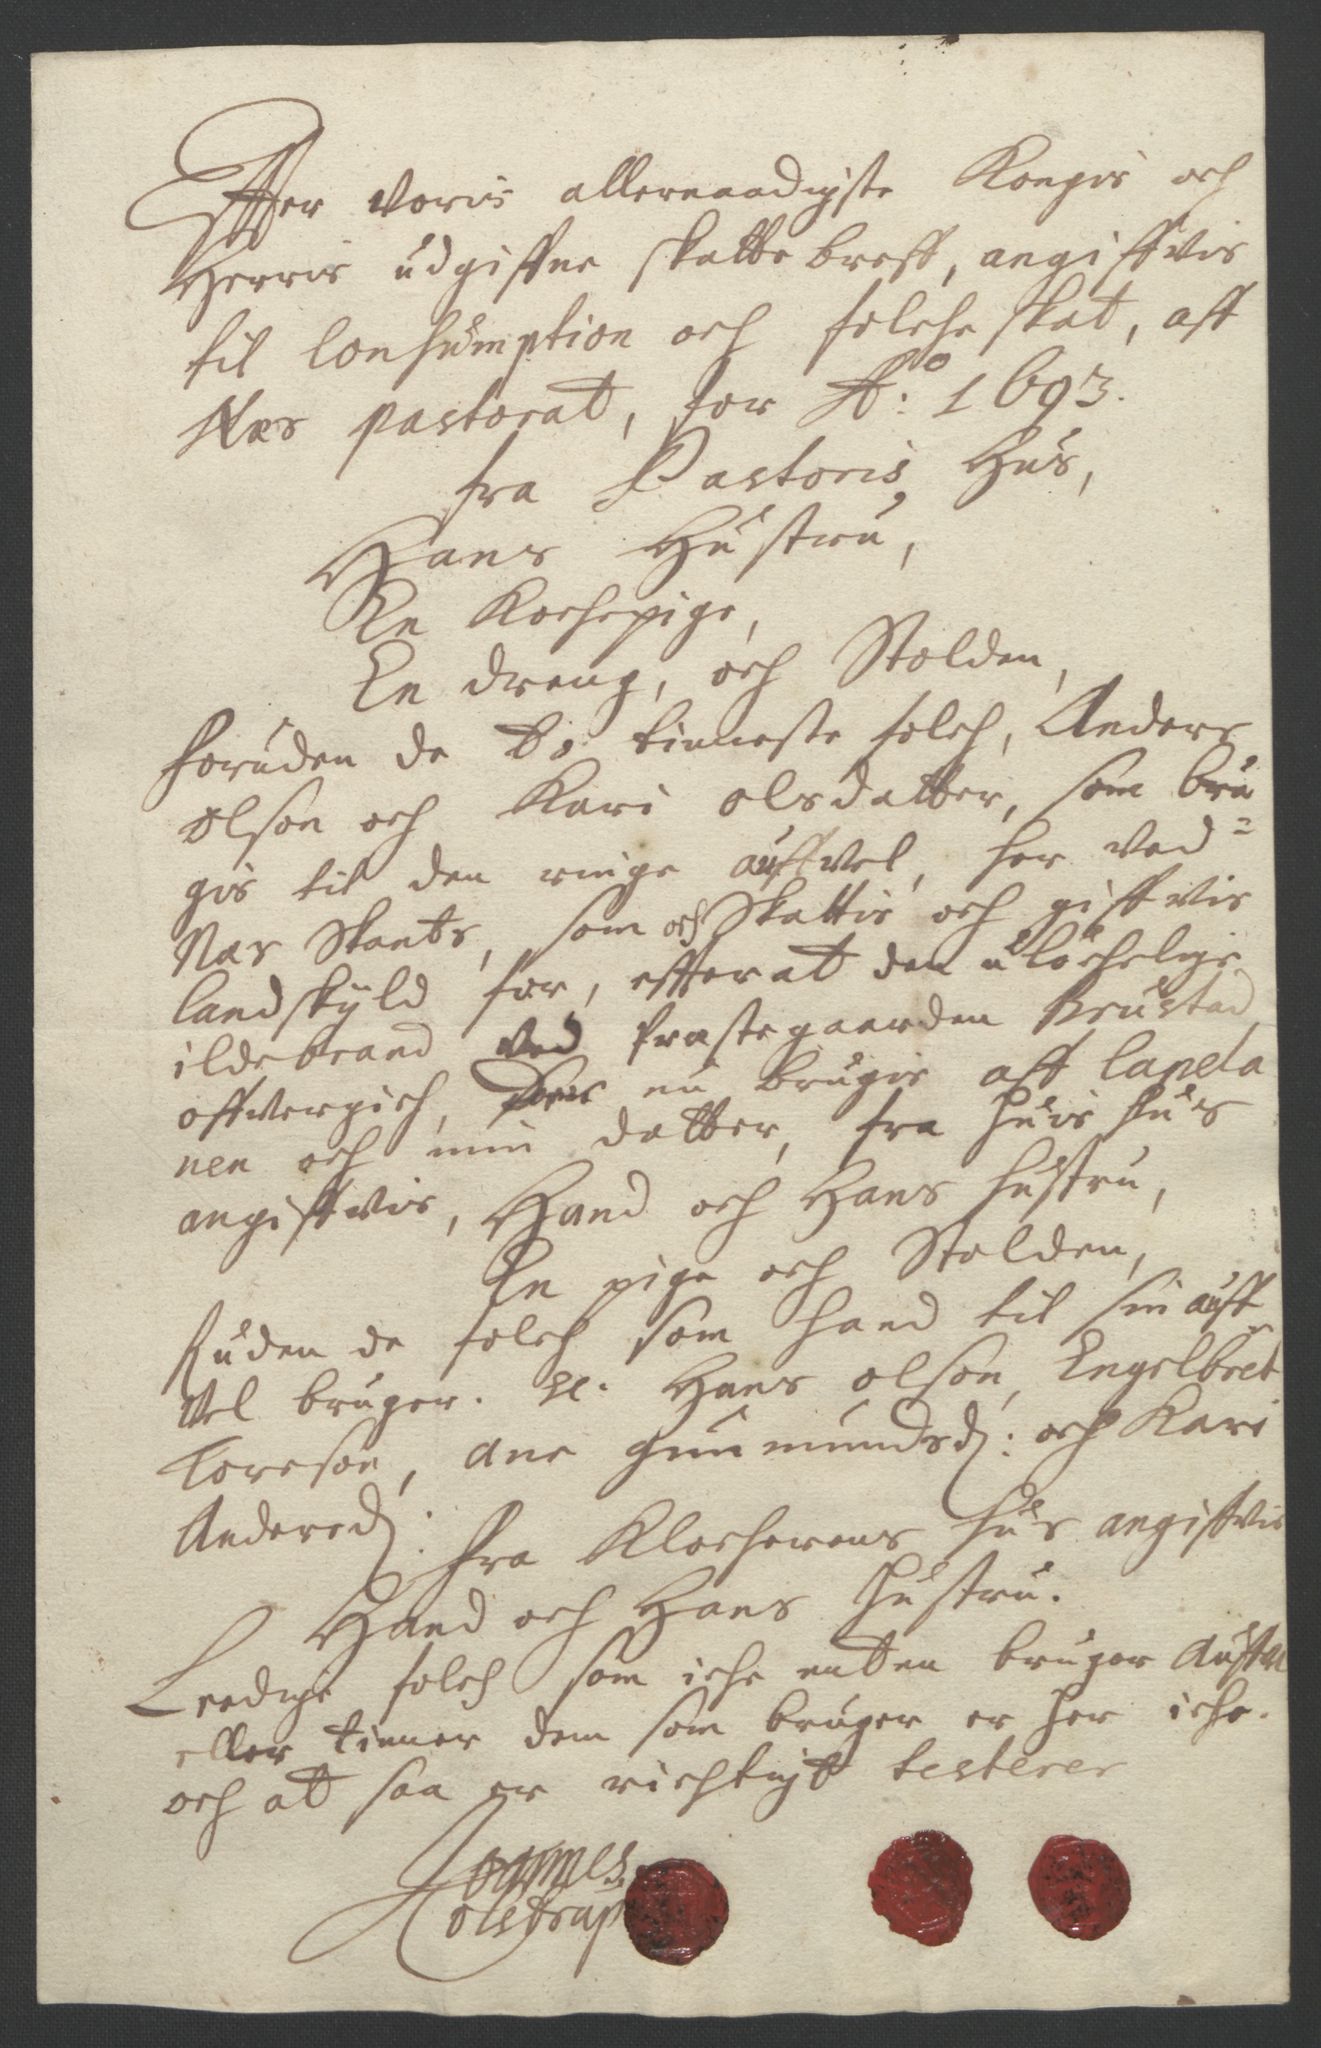 Effter voris allernaadigste Kongis och
Herris udgiffne skattebreff, angiffvis
til Consumption och folche skat, aff
Næs pastorat, for A.º 1693.
fra Pastoris Hus,
Hans Hustru,
En Kochepige,
En dreng, och Stolden,
foruden de to tienneste folch, Anders
olson och Kari olsdatter, som bru
gis til den ringe auffvel, her ved=
Næs Skants, som och Skattis och giffvis
landskyld for, effterat den ulöchelige
ildebrand ved Præstegaarden Prustad
offvergich, som nu brugis aff Capela
nen och min datter, fra huis hus
angiffvis, Hand och Hans hustru,
En pige och Stolden,
Uden de folch som hand til sin auff
vel bruger. N. Hans olson, Engelbret
Toreson, Ane Gunmundsd: och Kari
Andersd:
fra Klocherens hus angiffvis
Hand och Hans Hustru.
Leedige folch som iche enten bruger Auffvel
eller tienner dem som bruger er her iche.
och at saa er richtigt testerer
Joannes
Colstrup